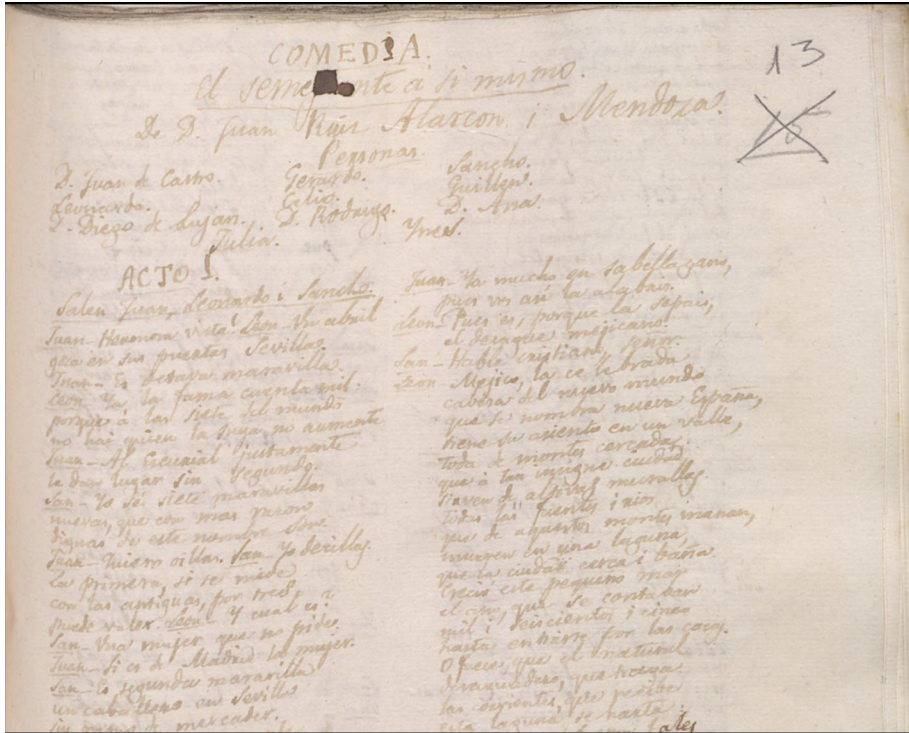 COMEDIA.
13
El semejante a si mismo.
De D. Juan Ruiz Alarcon i Mendoza.
Personas.
D. Juan de Castro. Gerardo. Sancho.
Leonardo. Celio. Guillen.
D. Diego de Lujan. D. Rodrigo. D. Ana.
Julia. Ynes.
ACTO I.
Salen Juan, Leonardo i Sancho.
Juan - Hermosa vista! Leon - Un abril
goza en sus puertas Sevilla.
Juan - Es octava maravilla.
Leon - Ya la fama cuenta mil.
porque á las siete del mundo
no hai quien la suya no aumente
Juan - Al Escurial justamente
le dan lugar sin segundo.
San - Yo sé siete maravillas
nuevas, que con mas razon
dignas de este nombre son.
Juan - Quiero oillas. San - Yo decillas.
La primera, si se mide
con las antiguas, por tres,
puede valer. Leon - Y cual es?
San - Una mujer que no pide.
Juan - Si es de Madrid la mujer.
San - Es segunda maravilla
un caballero en Sevilla
sin ramo de mercader.
Juan - Ya mucho en sabella gano,
pues vos asi la alabais.
Leon - Pues es, porque la sepais,
el desague mejicano.
San - Hable cristiano, señor.
Leon - Mejico, la celebrada
cabeza del nuevo mundo
que se nombra nueva España,
tiene su asiento en un valle,
toda de montes cercada,
que á tan insigne ciudad
sirven de altivas murallas.
todas las fuentes i rios
que de aquestos montes manan,
mueren en una laguna,
que la ciudad cerca i baña.
Creció este pequeno mar
el año, que se contaban
mil i seiscientos i cinco
hasta entrarse por las casas.
O fuese, que el natural
desaguadero, que traga
las corrientes, que recibe
esta laguna se harta